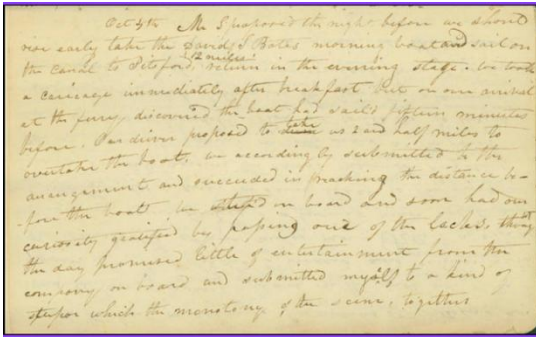 Oct 4th Mr S proposed the night before we should
rise early take the David S Bates morning boat and sail on
the canal to Pitsford, 12 miles return in the evening stage. We took
a carriage immediately after breakfast but on our arrival
at the ferry, discovered the boat had sail'd fifteen minutes
before. Our driver proposed to take us 2 and half miles to
overtake the boat. we accordingly submitted to the
arrangement and succeeded in reaching the distance be-
fore the boat, we step'd on board and soon had our
curiosity gratified by passing one of the locks,
the day promised little of entertainment from the
company on board and submitted myself to a kind of
stupor which the monotony of the scene, together